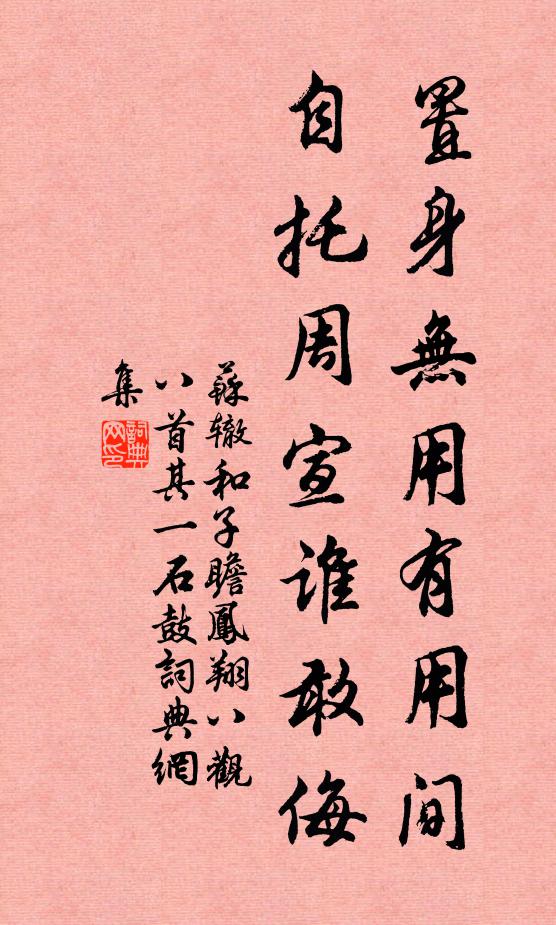 置身無用有用間
自托周宣誰敢侮
蘇辙和子瞻鳳翔八觀
八首其一石鼓詞典網
集
詞典
网印